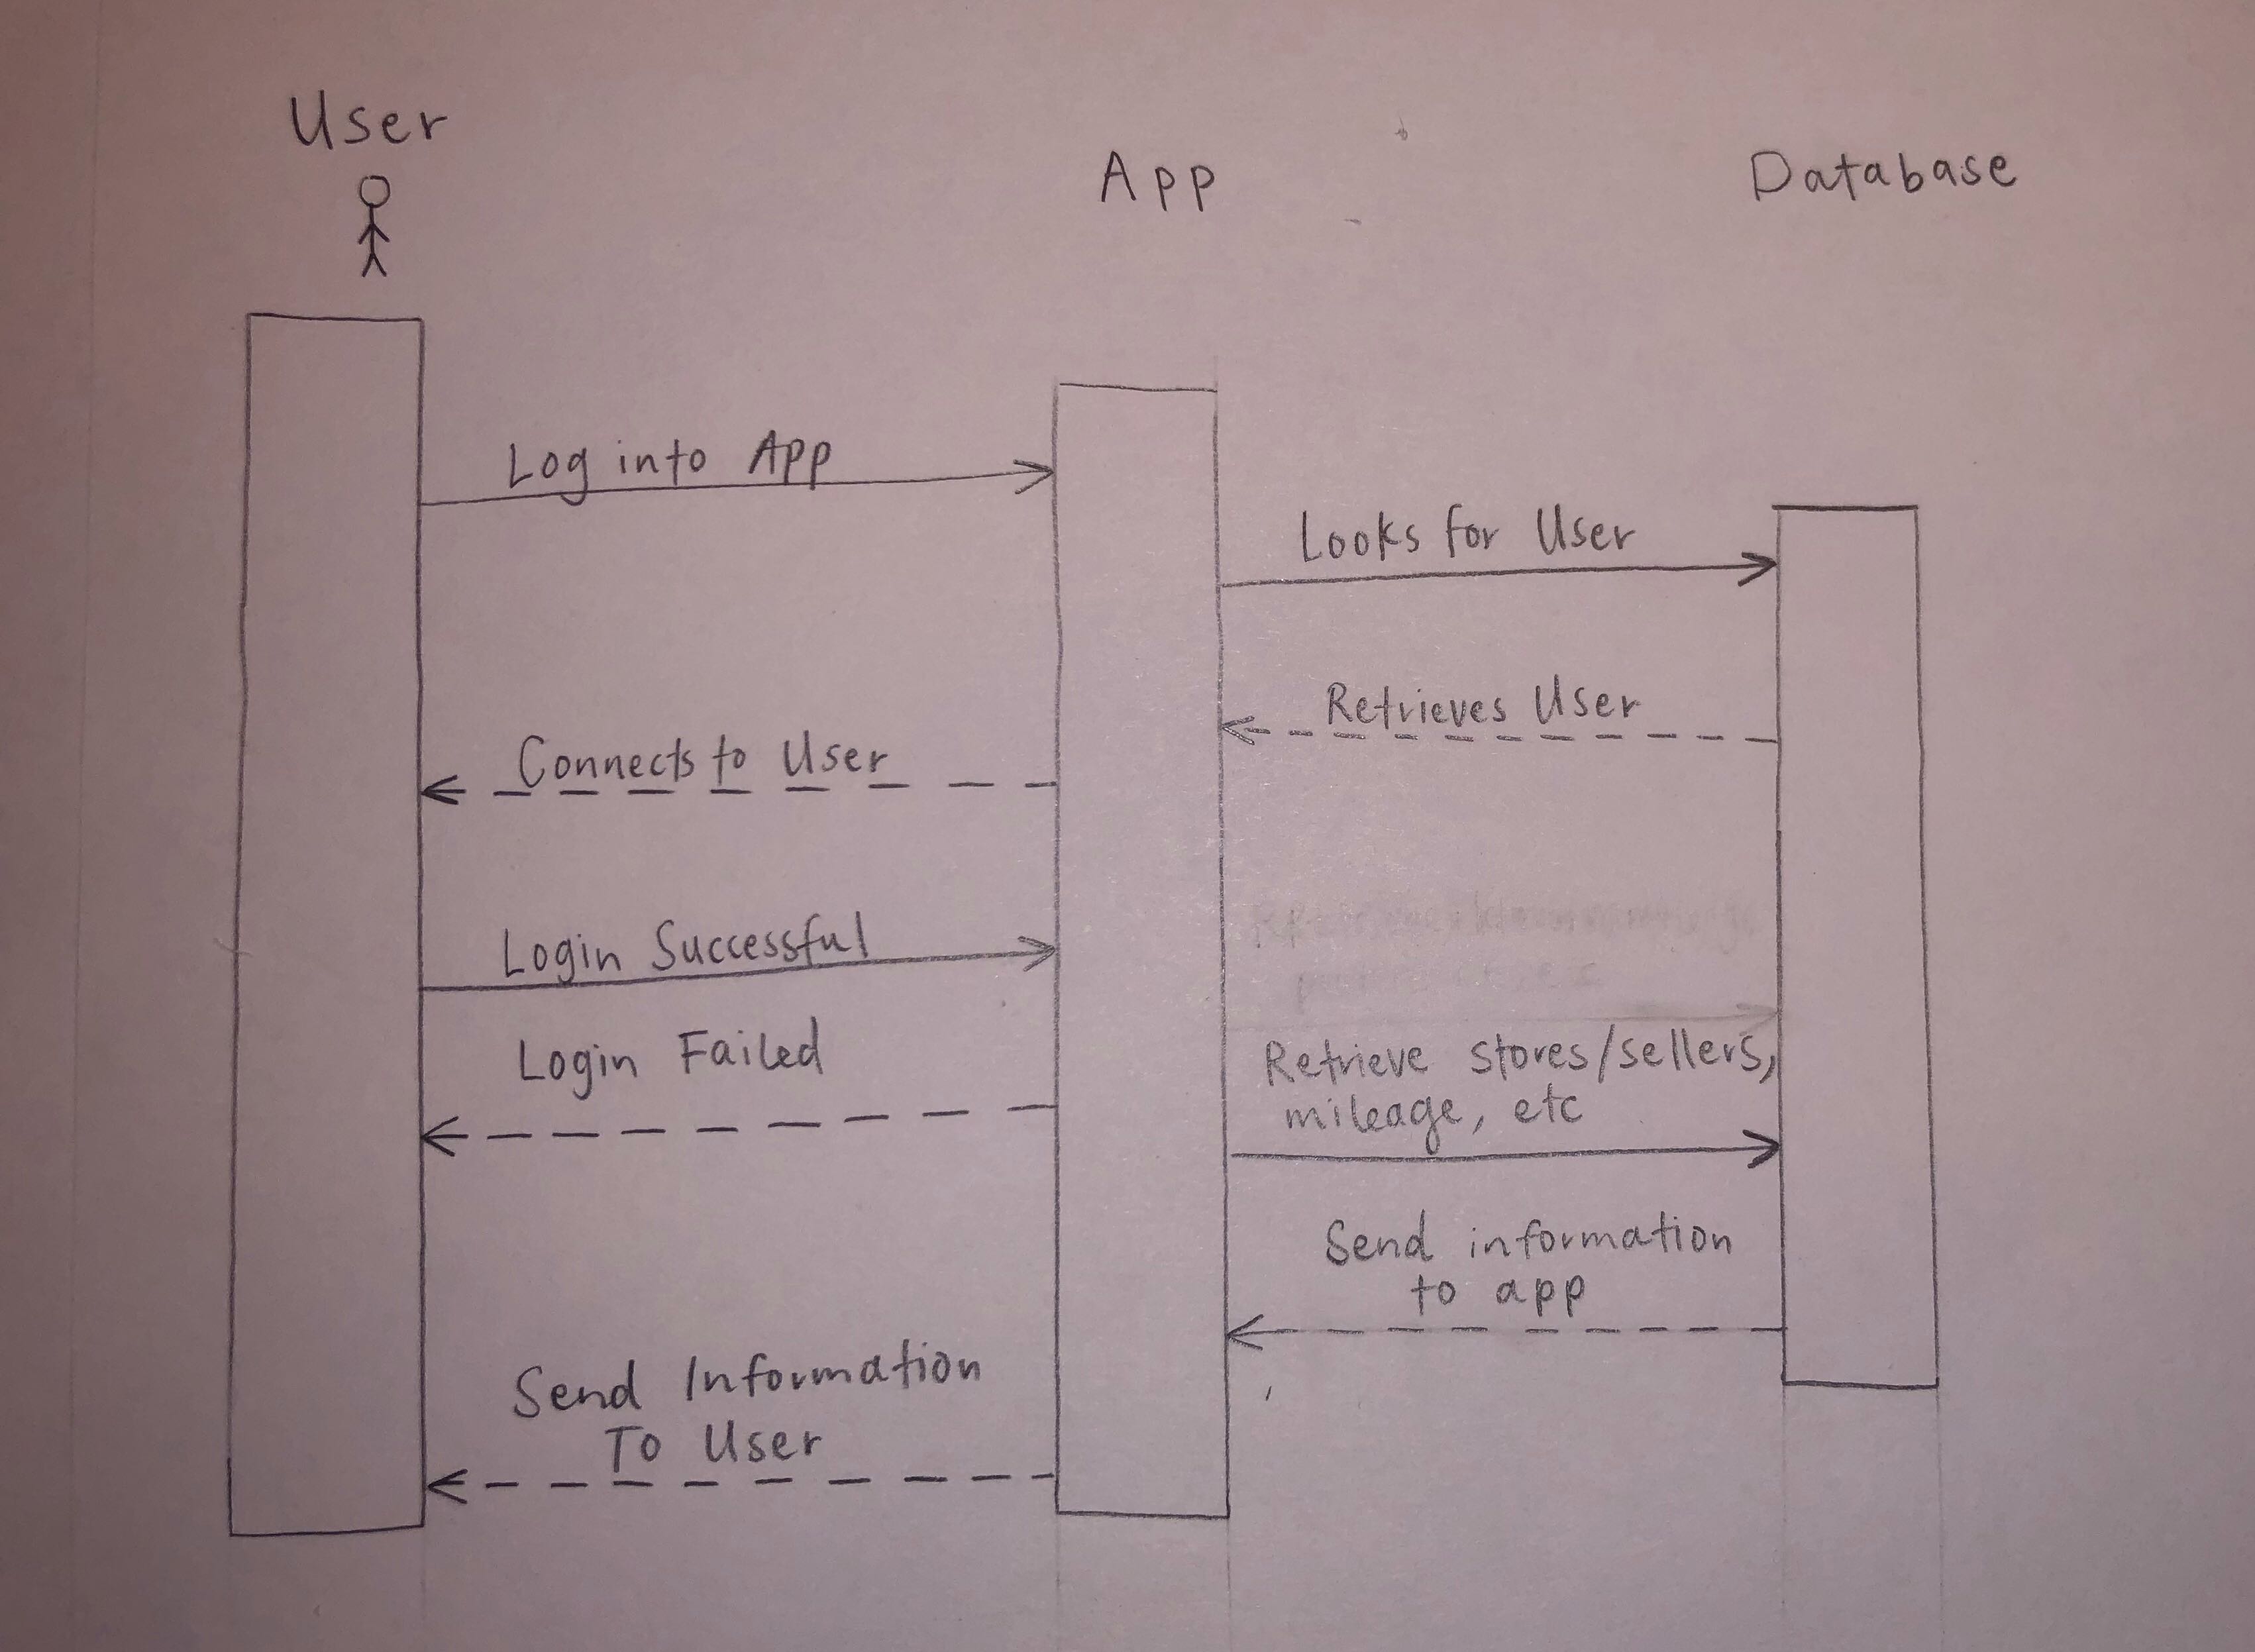 User
App
Database
Log into App
Looks for User
Retrieves User
Connects to User
Login Successful
Login Failed
Retrieve stores/sellers,
mileage, etc
Send information
to app
Send Information
To User